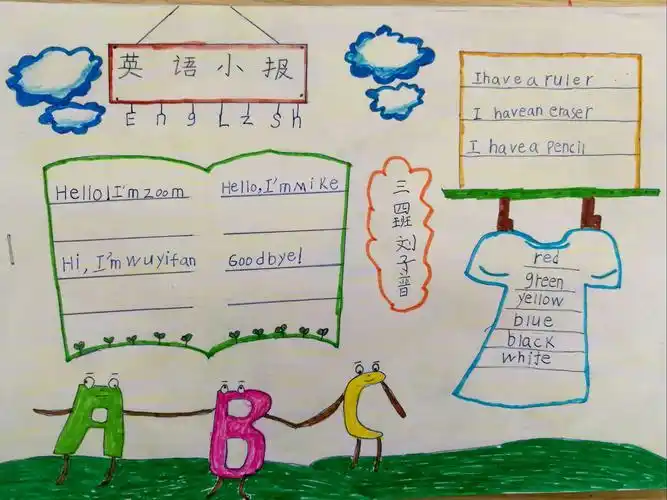 英语小报
EngLzSh
Hello,I'm zoom
Hello,I'm Mike
Hi, I'm wuyifan
Goodbye!
三四班刘子晋
I have a ruler
I have an eraser
I have a pencil
red
green
yellow
blue
black
white
A B C